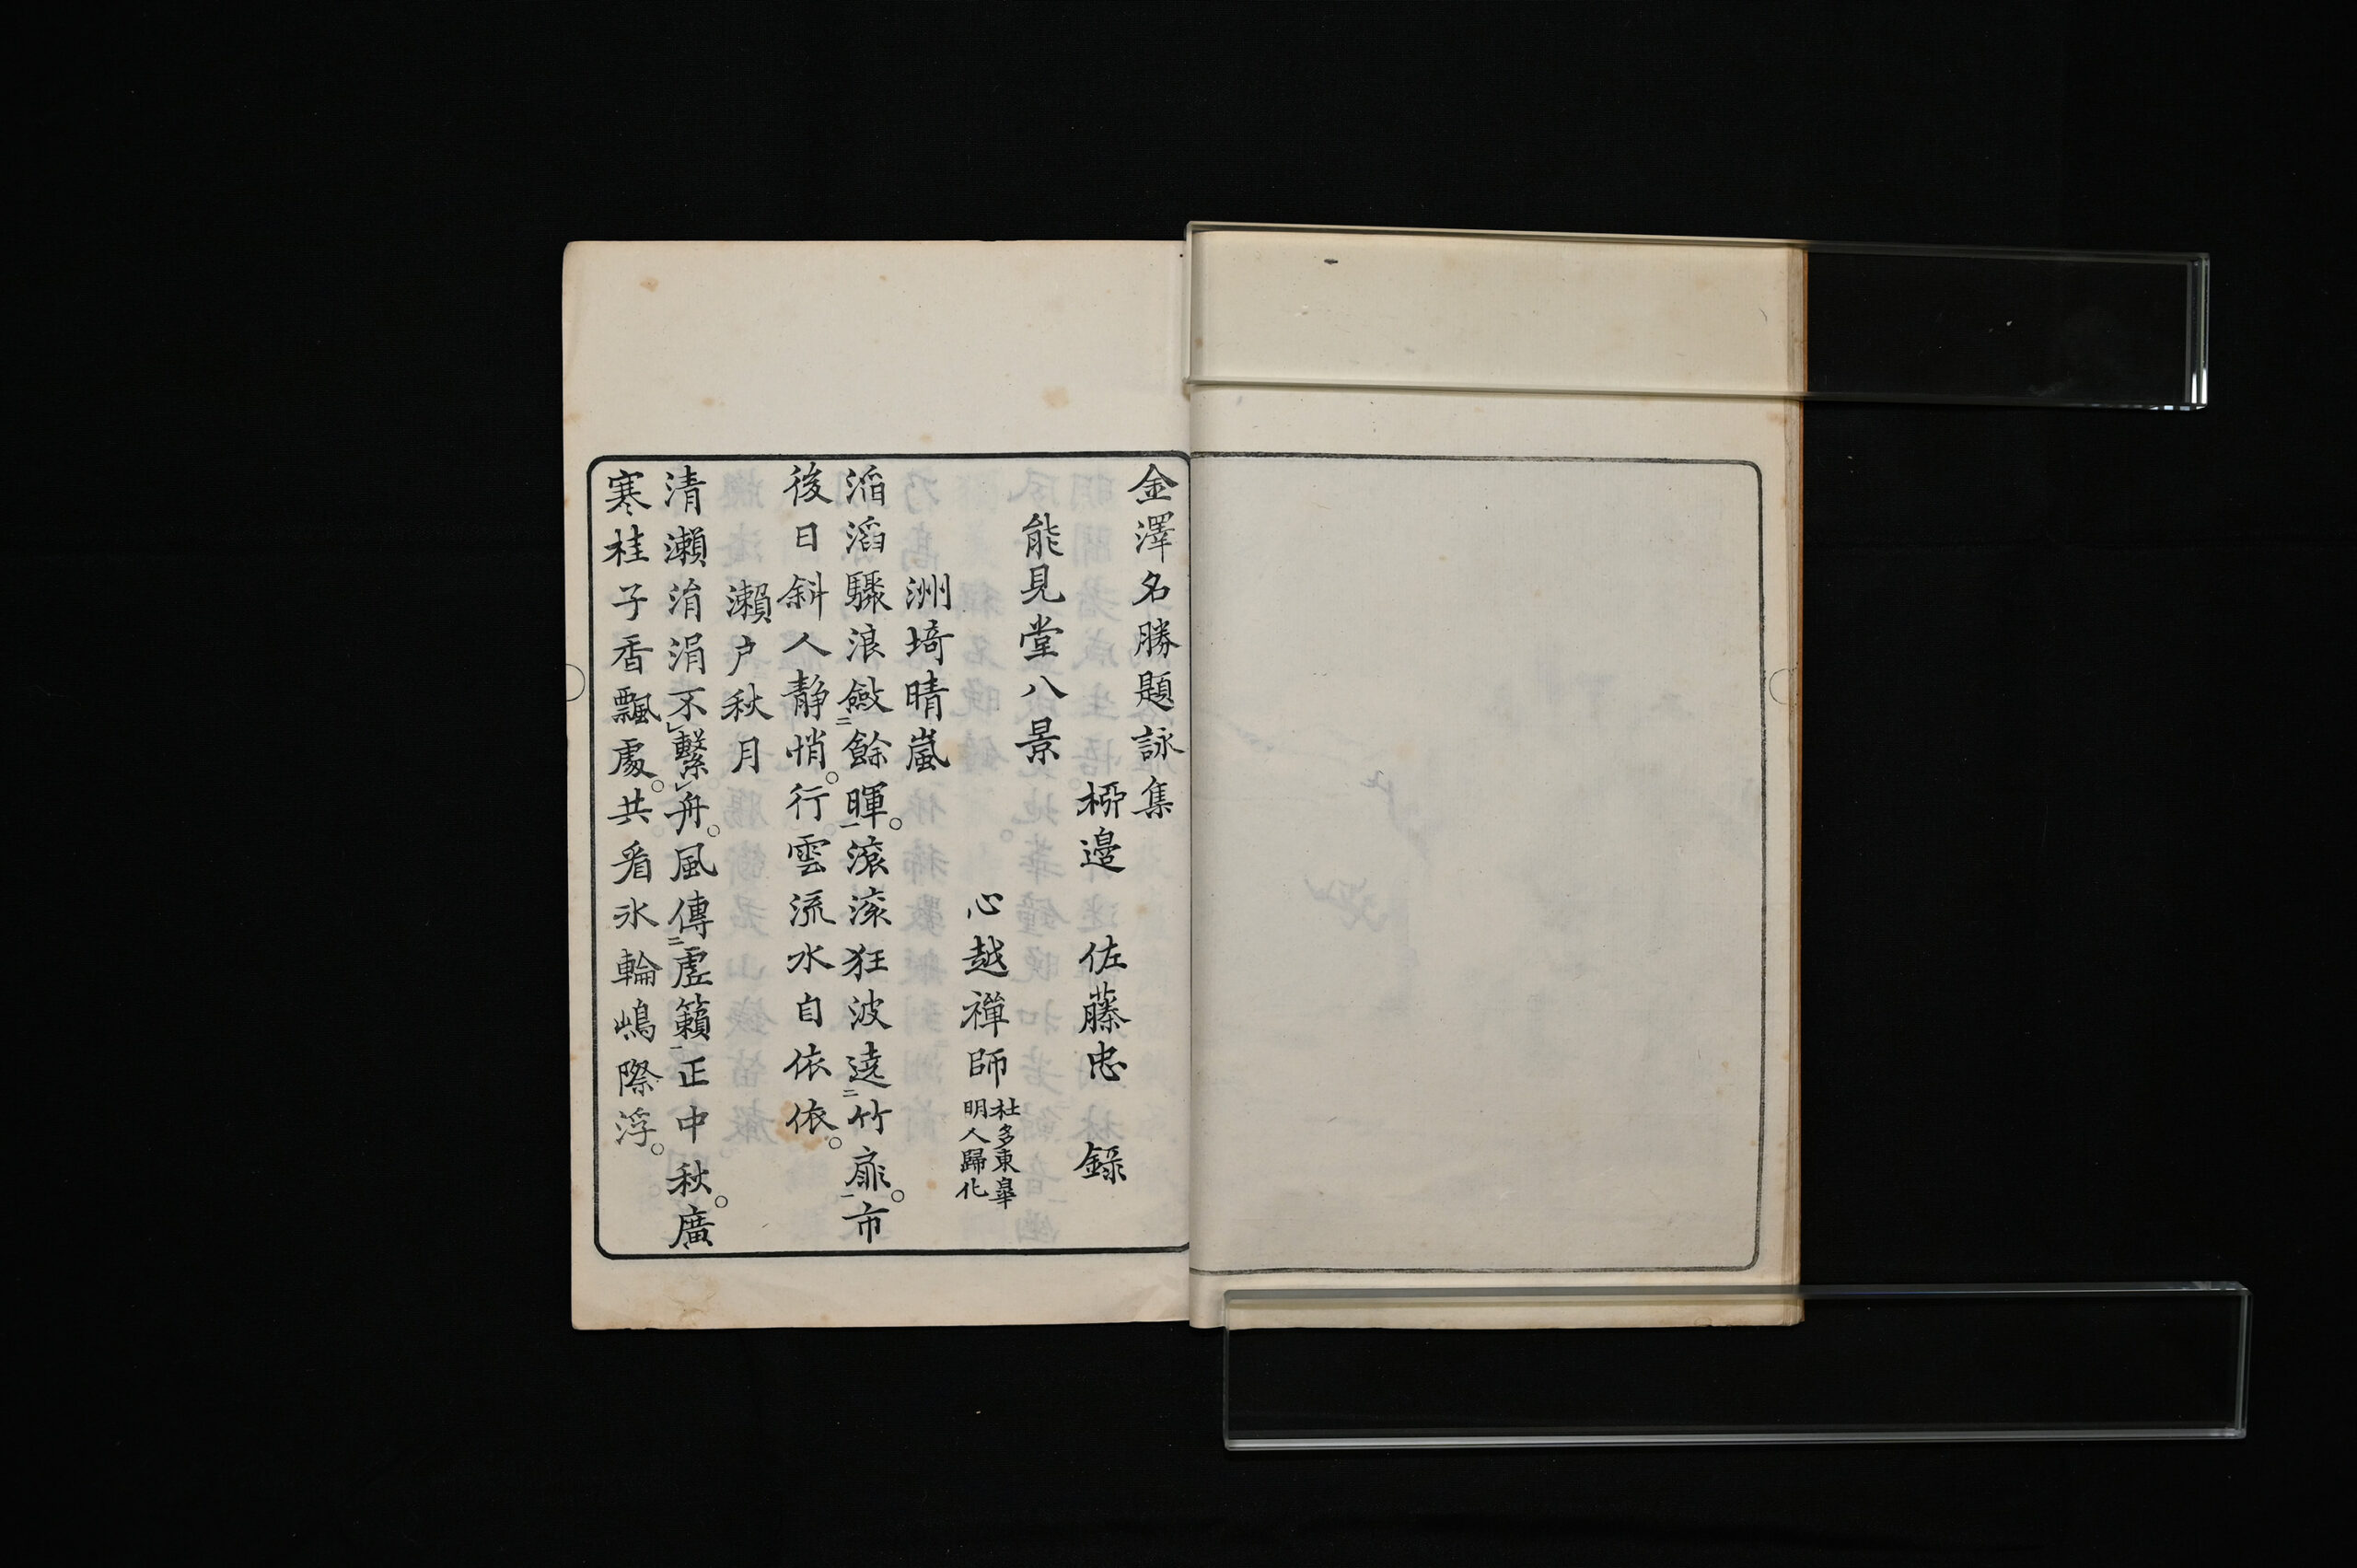 金澤名勝題詠集
栁邉 佐藤忠 録
能見堂八景
心越禪師 杜多東皐 明人歸化
洲﨑晴嵐
滔滔驟浪斂二餘暉一。滾滾狂波遶二竹扉一。市
後日斜人靜悄。行雲流水自依依。
瀨户秋月
清瀨涓涓不レ繫レ舟。風傳二虛籟一正中秋。廣
寒桂子香飄處。共看氷輪嶋際浮。